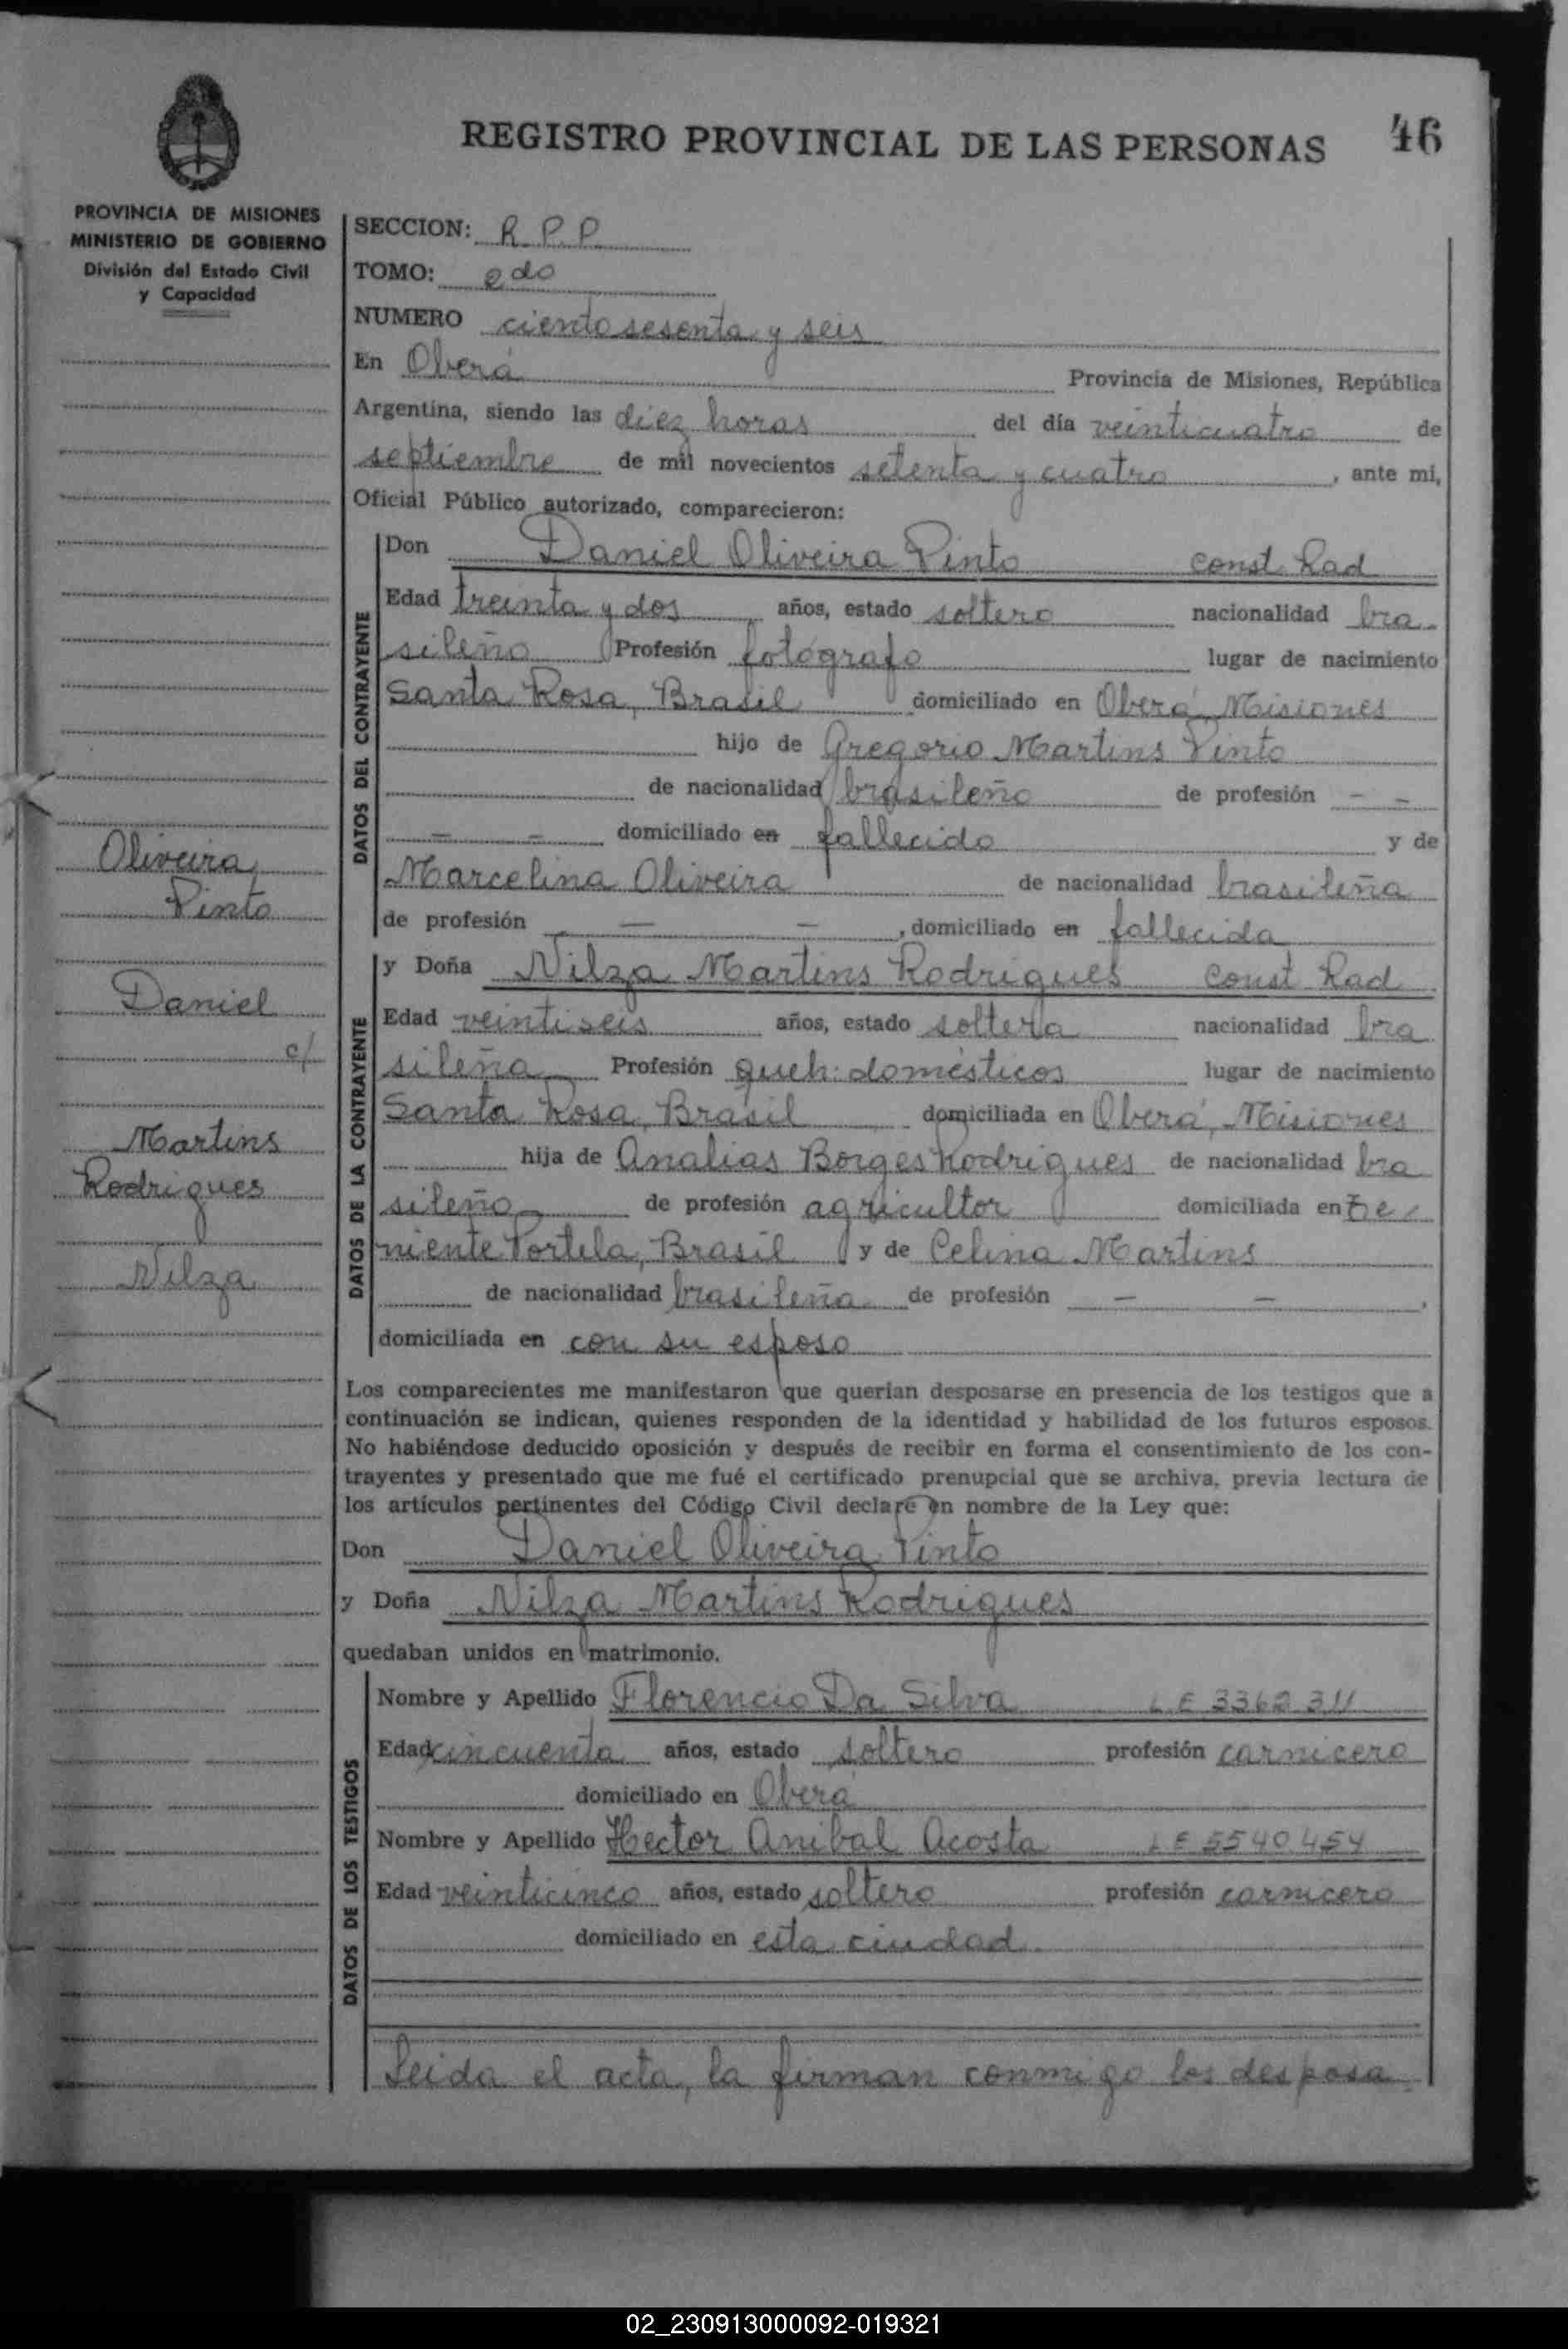 REGISTRO PROVINCIAL DE LAS PERSONAS 46
PROVINCIA DE MISIONES
MINISTERIO DE GOBIERNO
División del Estado Civil
y Capacidad
Oliveira
Pinto
Daniel
c/
Martins
Rodrigues
Nilza
SECCION: R. P. P.
TOMO: 2do
NUMERO ciento sesenta y seis
En Oberá Provincia de Misiones, República
Argentina, siendo las diez horas del día veinticuatro de
septiembre de mil novecientos setenta y cuatro, ante mi,
Oficial Público autorizado, comparecieron:
DATOS DEL CONTRAYENTE
Don Daniel Oliveira Pinto const Rad
Edad treinta y dos años, estado soltero nacionalidad bra
sileño Profesión fotógrafo lugar de nacimiento
Santa Rosa, Brasil domiciliado en Oberá, Misiones
hijo de Gregorio Martins Pinto
de nacionalidad brasileño de profesión - -
- - domiciliado en fallecido y de
Marcelina Oliveira de nacionalidad brasileña
de profesión - - , domiciliado en fallecida
DATOS DE LA CONTRAYENTE
y Doña Nilza Martins Rodrigues const Rad
Edad veintiseis años, estado soltera nacionalidad bra
sileña Profesión queh. domésticos lugar de nacimiento
Santa Rosa, Brasil domiciliada en Oberá, Misiones
hija de Analias Borges Rodrigues de nacionalidad bra
sileño de profesión agricultor domiciliada en Te
niente Portela, Brasil y de Celina Martins
de nacionalidad brasileña de profesión - - ,
domiciliada en con su esposo
Los comparecientes me manifestaron que querían desposarse en presencia de los testigos que a
continuación se indican, quienes responden de la identidad y habilidad de los futuros esposos.
No habiéndose deducido oposición y después de recibir en forma el consentimiento de los con-
trayentes y presentado que me fué el certificado prenupcial que se archiva, previa lectura de
los artículos pertinentes del Código Civil declaré en nombre de la Ley que:
Don Daniel Oliveira Pinto
y Doña Nilza Martins Rodrigues
quedaban unidos en matrimonio.
DATOS DE LOS TESTIGOS
Nombre y Apellido Florencio Da Silva L E 3362311
Edad cincuenta años, estado soltero profesión carnicero
domiciliado en Oberá
Nombre y Apellido Hector Anibal Acosta L E 5540454
Edad veinticinco años, estado soltero profesión carnicero
domiciliado en esta ciudad.
Leida el acta, la firman conmigo los desposa
02_230913000092-019321